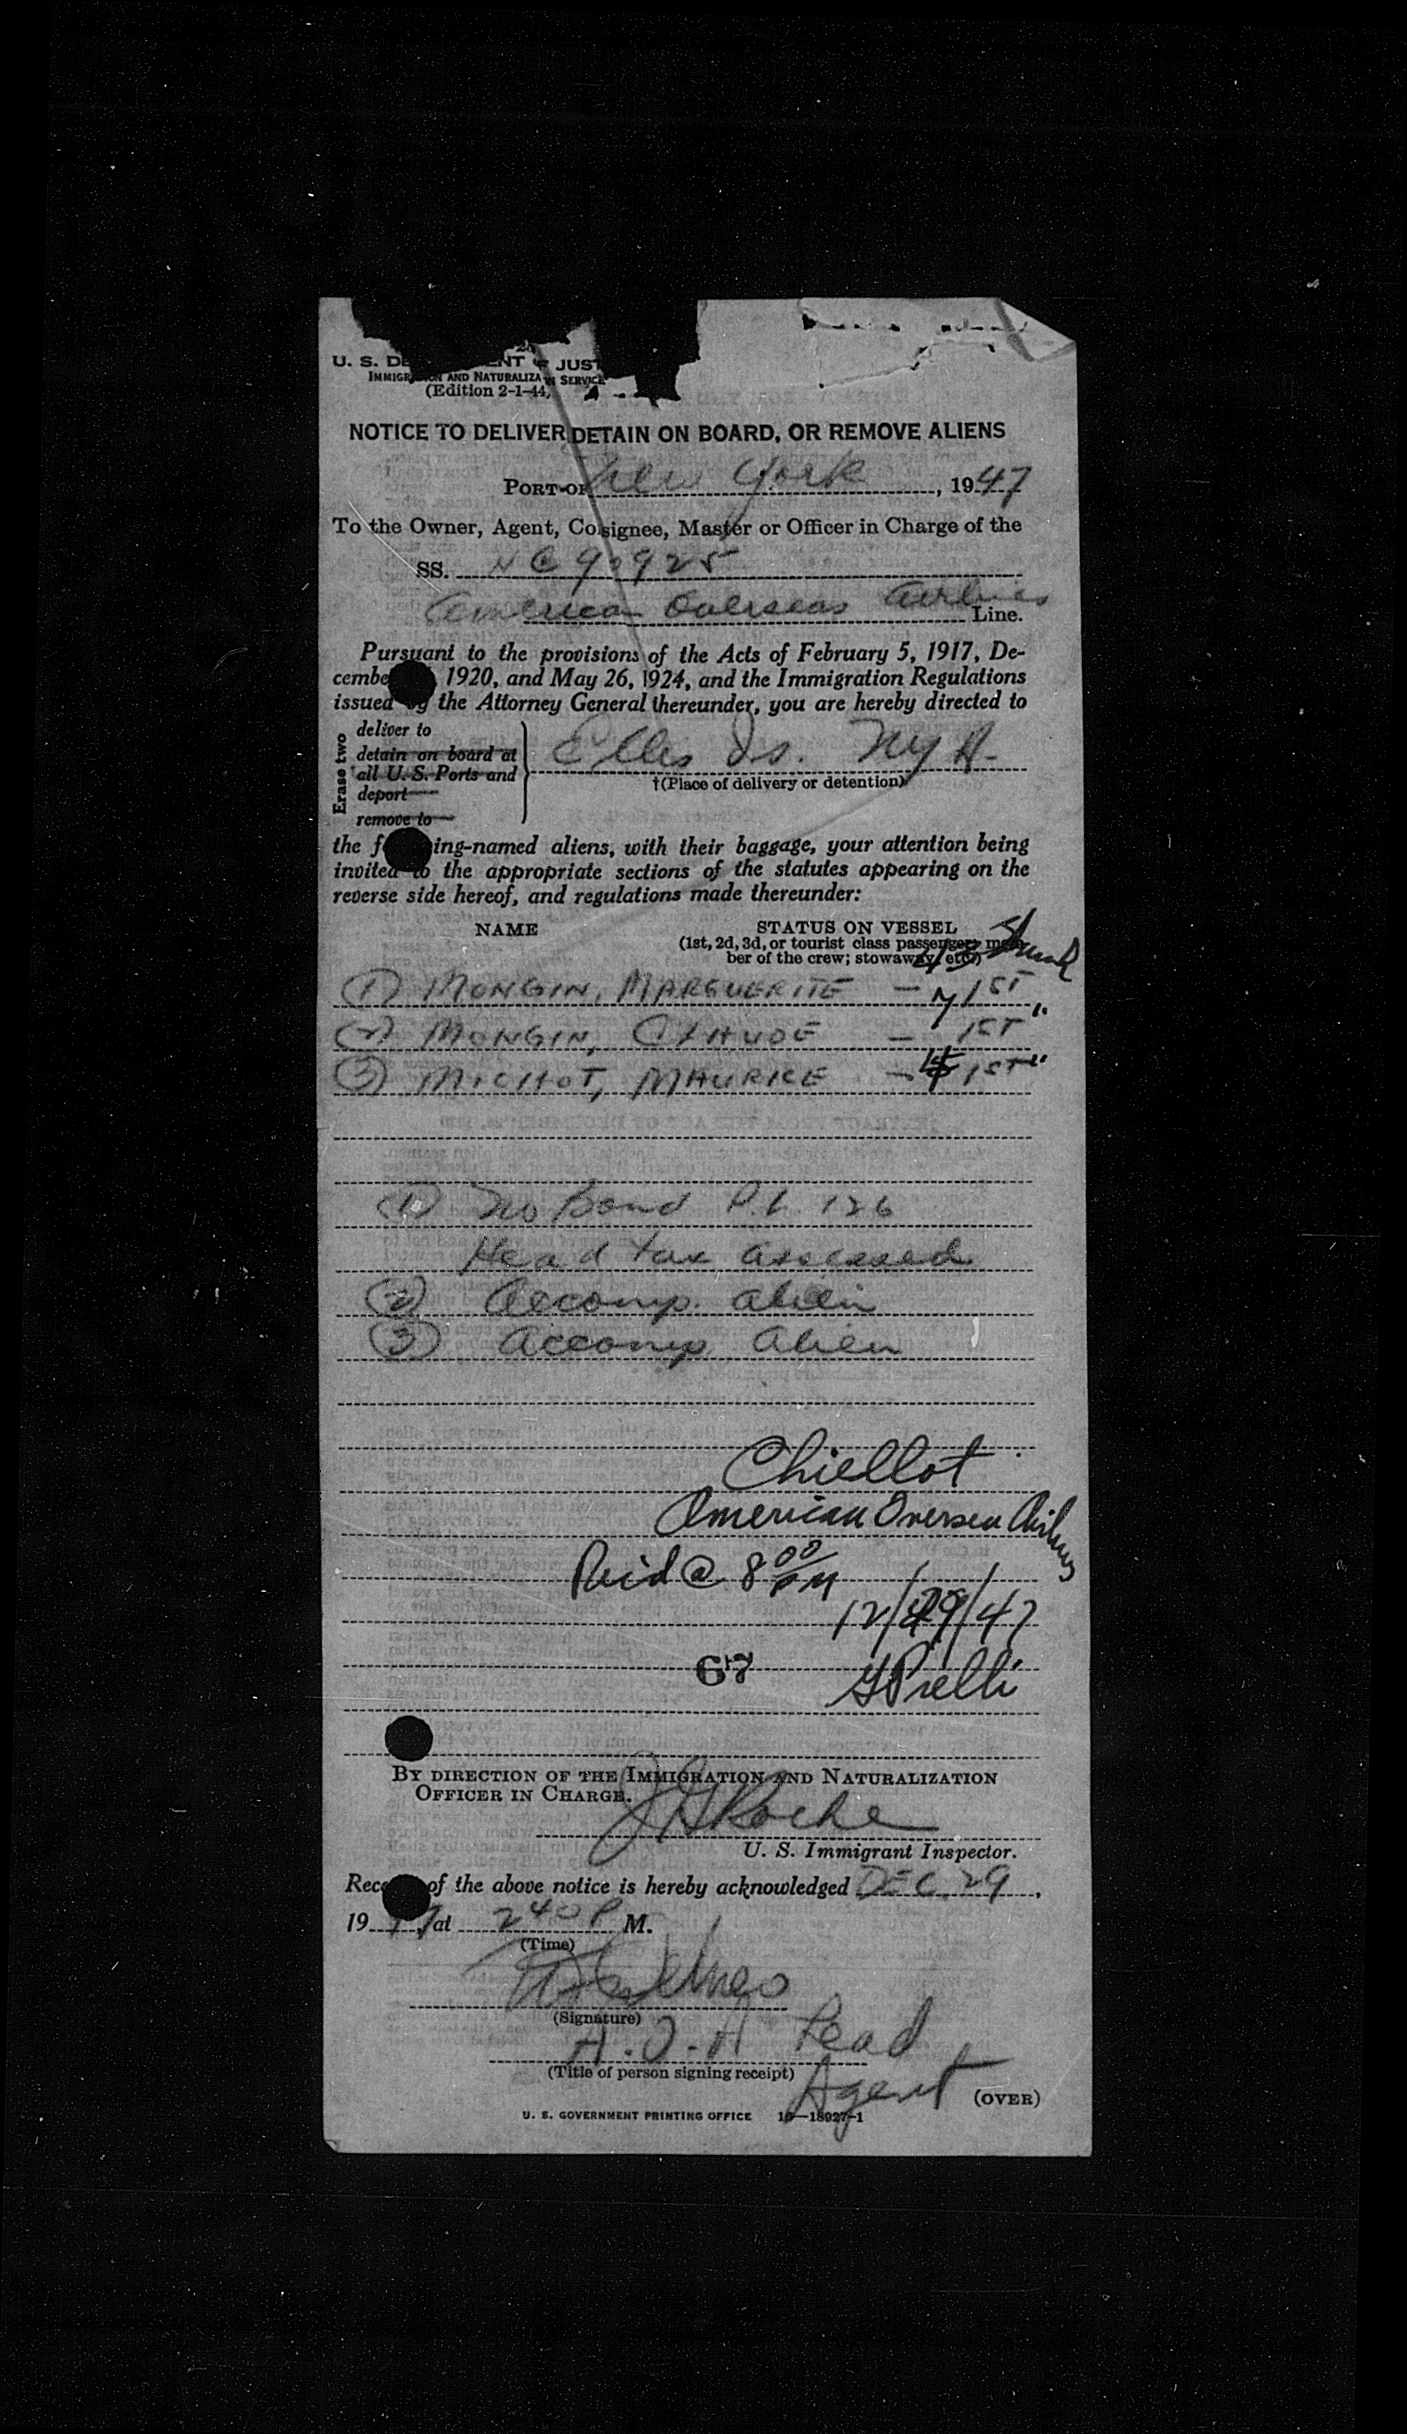 U. S. JUST
IMMIGR AND NATURALIZA SERVICE
(Edition 2-1-44)
NOTICE TO DELIVER, DETAIN ON BOARD, OR REMOVE ALIENS
PORT OF New York, 1947
To the Owner, Agent, Consignee, Master or Officer in Charge of the
SS. NC 90925
American Overseas Airlines Line.
Pursuant to the provisions of the Acts of February 5, 1917, De-
cembe 1920, and May 26, 1924, and the Immigration Regulations
issued by the Attorney General thereunder, you are hereby directed to
Erase two
deliver to
detain on board at
†all U. S. Ports and
deport
remove to
Ellis Is. NY H.
†(Place of delivery or detention)
the f ing-named aliens, with their baggage, your attention being
invited to the appropriate sections of the statutes appearing on the
reverse side hereof, and regulations made thereunder:
NAME STATUS ON VESSEL
(1st, 2d, 3d, or tourist class passenger; mem-
ber of the crew; stowaway, etc.)
(1) MONGIN, MARGUERITE - 1ST
(2) MONGIN, CLAUDE - 1ST "
(3) MICHOT, MAURICE - 1ST "
(1) No Bond P.L. 126
Head tax assessed
(2) Accomp. alien
(3) Accomp. alien
Chiellot
American Oversea Airlines
@ 8 00 PM
12/29/47
67
By DIRECTION OF THE IMMIGRATION AND NATURALIZATION
OFFICER IN CHARGE.
Roche
U. S. Immigrant Inspector.
Rece of the above notice is hereby acknowledged DEC. 29,
19 7, at 2 40 P M.
(Time)
(Signature)
Lead
(Title of person signing receipt)
Agent
(OVER)
U. S. GOVERNMENT PRINTING OFFICE 16—18927-1